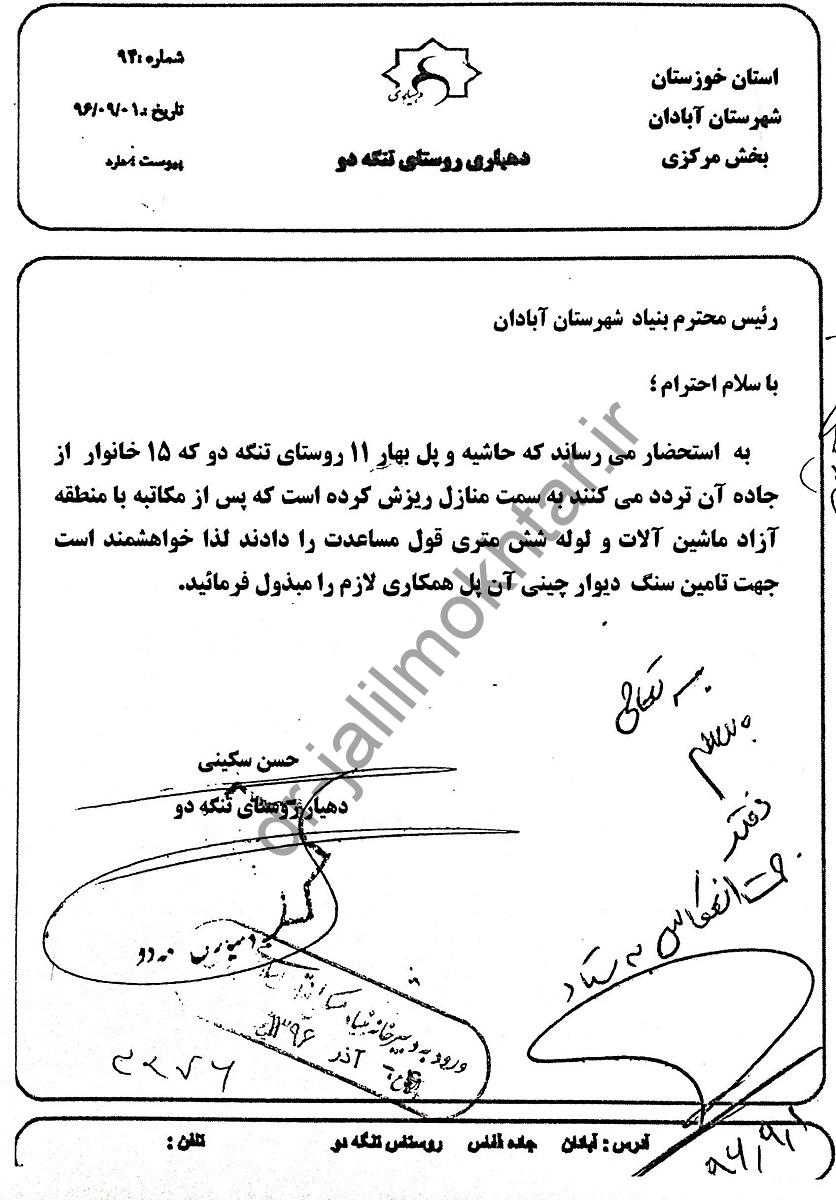 استان خوزستان
شهرستان آبادان
بخش مرکزی
دهیاری
دهیاری روستای تنگه دو
شماره :۹۴
تاریخ :۹۶/۰۹/۰۱
پیوست :ندارد
رئیس محترم بنیاد شهرستان آبادان
با سلام احترام ؛
به استحضار می رساند که حاشیه و پل بهار ۱۱ روستای تنگه دو که ۱۵ خانوار از
جاده آن تردد می کنند به سمت منازل ریزش کرده است که پس از مکاتبه با منطقه
آزاد ماشین آلات و لوله شش متری قول مساعدت را دادند لذا خواهشمند است
جهت تامین سنگ دیوار چینی آن پل همکاری لازم را مبذول فرمائید.
حسن سکینی
دهیار روستای تنگه دو
بسمه تعالی
دفتر
جهت انعکاس به ستاد
۹۶/۹/۱
ورود به دبیرخانه بنیاد مسکن انقلاب
آذر ۱۳۹۶
۲۲۷۶
dr-jalilmokhtar.ir
آدرس : آبادان جاده روستای تنگه دو
تلفن :